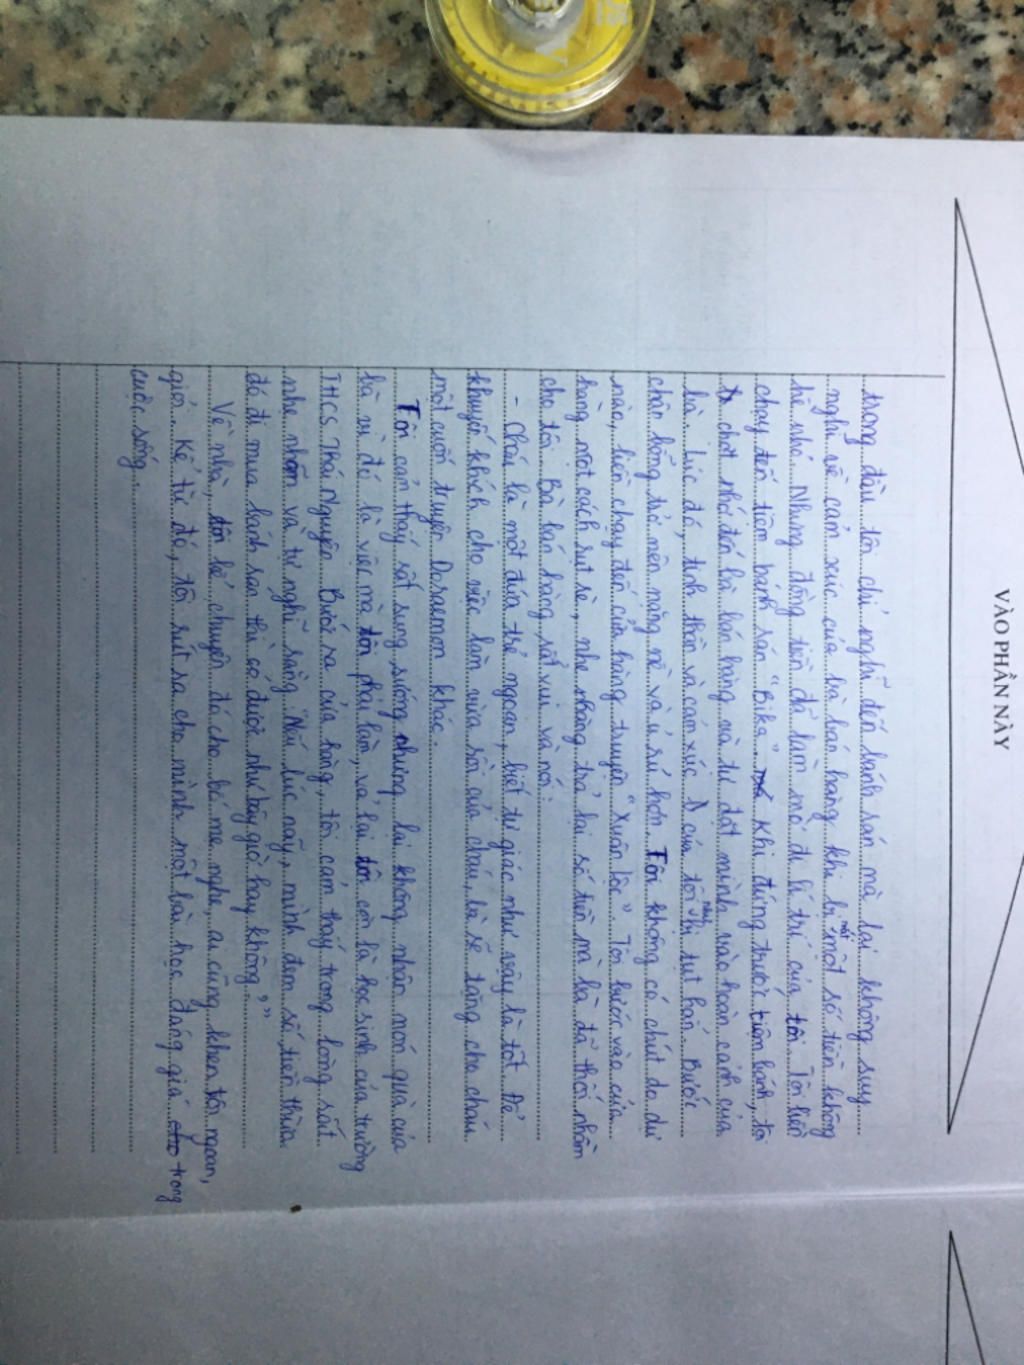 VÀO PHẦN NÀY
trong đầu tôi chỉ nghĩ đến bánh sắn mà lại không suy
nghĩ về cảm xúc của bà bán hàng khi bị mất một số tiền không
hề nhỏ. Nhưng đồng tiền đó làm mờ đi lí trí của tôi. Tôi liền
chạy đến tiệm bánh sắn "Bika". Khi đứng trước tiệm bánh, tôi
chợt nhớ đến bà bán hàng và tự đặt mình vào hoàn cảnh của
bà. Lúc đó, tinh thần và cảm xúc của tôi như bị tụt hẳn. Bước
chân bỗng trở nên nặng nề và ủ rũ hơn. Tôi không có chút do dự
nào, liền chạy đến cửa hàng truyện "Xuân Lộc". Tôi bước vào cửa
hàng một cách rụt rè, nhẹ nhàng trả lại số tiền mà bà đã thối nhầm
cho tôi. Bà bán hàng rất vui và nói:
- Cháu là một đứa trẻ ngoan, biết tự giác như vậy là tốt. Để
khuyến khích cho việc làm vừa rồi của cháu, bà sẽ tặng cho cháu
một cuốn truyện Doraemon khác.
Tôi cảm thấy rất sung sướng nhưng lại không nhận món quà của
bà vì đó là việc mà tôi phải làm, vả lại tôi còn là học sinh của trường
THCS Thái Nguyên. Bước ra cửa hàng, tôi cảm thấy trong lòng rất
nhẹ nhõm và tự nghĩ rằng "Nếu lúc nãy, mình đem số tiền thừa
đó đi mua bánh sắn thì có được như bây giờ hay không."
Về nhà, tôi kể chuyện đó cho bố mẹ nghe, ai cũng khen tôi ngoan,
giỏi. Kể từ đó, tôi rút ra cho mình một bài học đáng giá trong
cuộc sống.